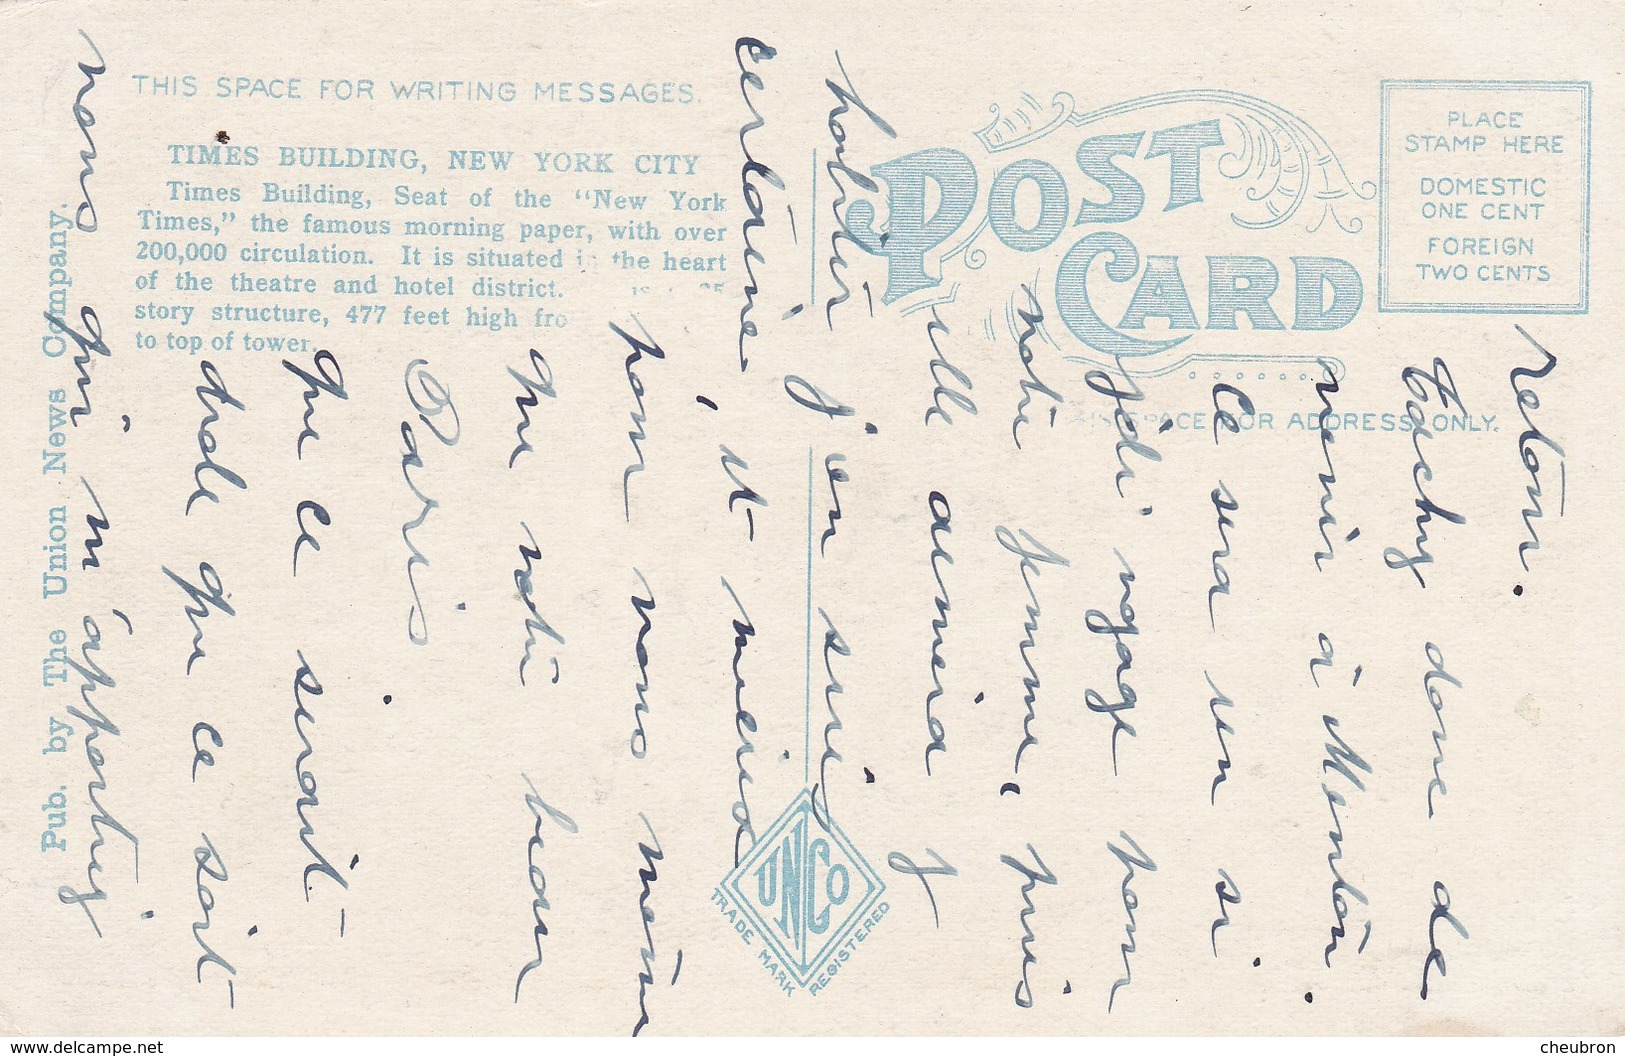 THIS SPACE FOR WRITING MESSAGES.
TIMES BUILDING, NEW YORK CITY
Times Building, Seat of the "New York
Times," the famous morning paper, with over
200,000 circulation. It is situated in the heart
of the theatre and hotel district.
story structure, 477 feet high fro
to top of tower.
Pub. by The Union News Company.
POST CARD
PLACE
STAMP HERE
DOMESTIC
ONE CENT
FOREIGN
TWO CENTS
SPACE FOR ADDRESS ONLY.
UNCo
TRADE MARK REGISTERED
retour.
tachy donc de
venir à Menton.
Ce sera un si
joli voyage pour
notre femme, puis
elle aimera y
habiter j'en suis
certaine, et mieux
pour nous même
que notre beau
Paris.
que ce serait
drole que ce soit
nous qui m'apportiez
cheubron.net
www.delcampe.net